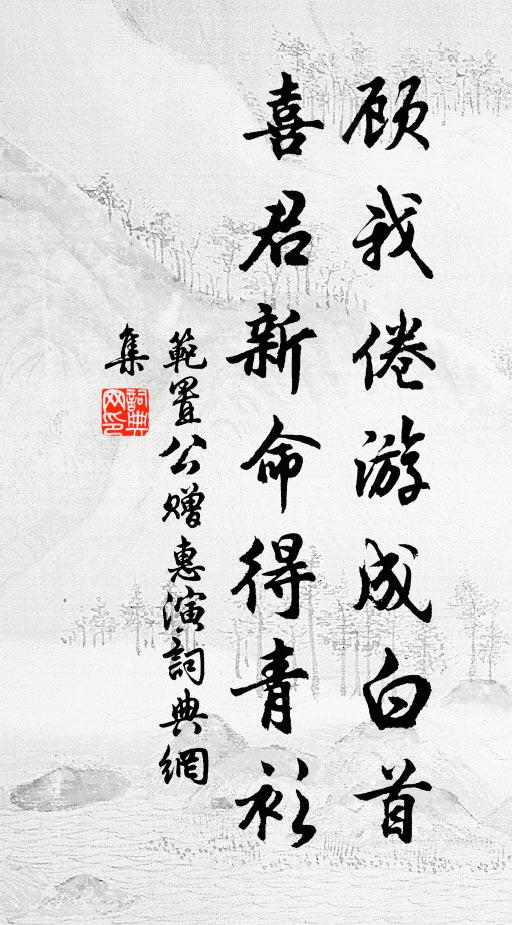 顾我倦游成白首
喜君新命得青衫
範置公赠惠演詞典網
集
詞典网印